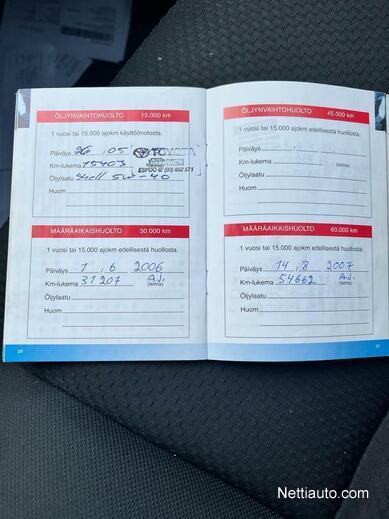 ÖLJYNVAIHTOHUOLTO 15.000 km
1 vuosi tai 15.000 ajokm käyttöönotosta.
Päiväys 26 . 05 TOYOTA
Km-lukema 15403
ESPOO
Öljylaatu Shell 5W-40
Huom
MÄÄRÄAIKAISHUOLTO 30.000 km
1 vuosi tai 15.000 ajokm edellisestä huollosta.
Päiväys 1 . 6 2006
Km-lukema 31207 A.J.
(leima)
Öljylaatu
Huom
ÖLJYNVAIHTOHUOLTO 45.000 km
1 vuosi tai 15.000 ajokm edellisestä huollosta.
Päiväys
Km-lukema
(leima)
Öljylaatu
Huom
MÄÄRÄAIKAISHUOLTO 60.000 km
1 vuosi tai 15.000 ajokm edellisestä huollosta.
Päiväys 14 . 8 2007
Km-lukema 54662 A.J.
(leima)
Öljylaatu
Huom
Nettiauto.com